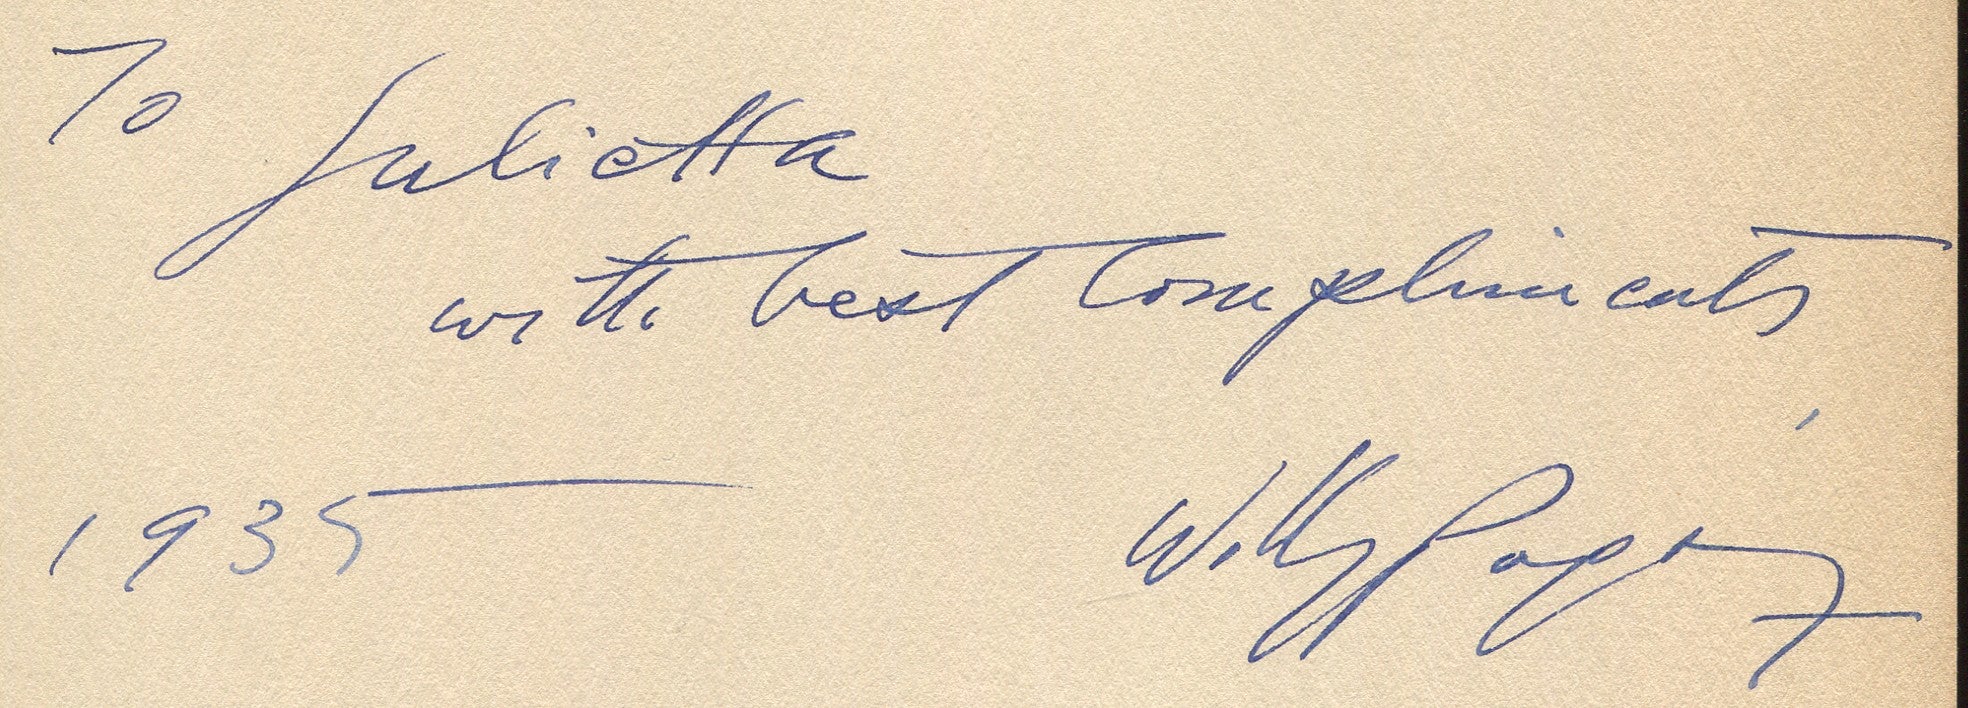 To Julietta
with best Compliments
1935 Willy Pogány